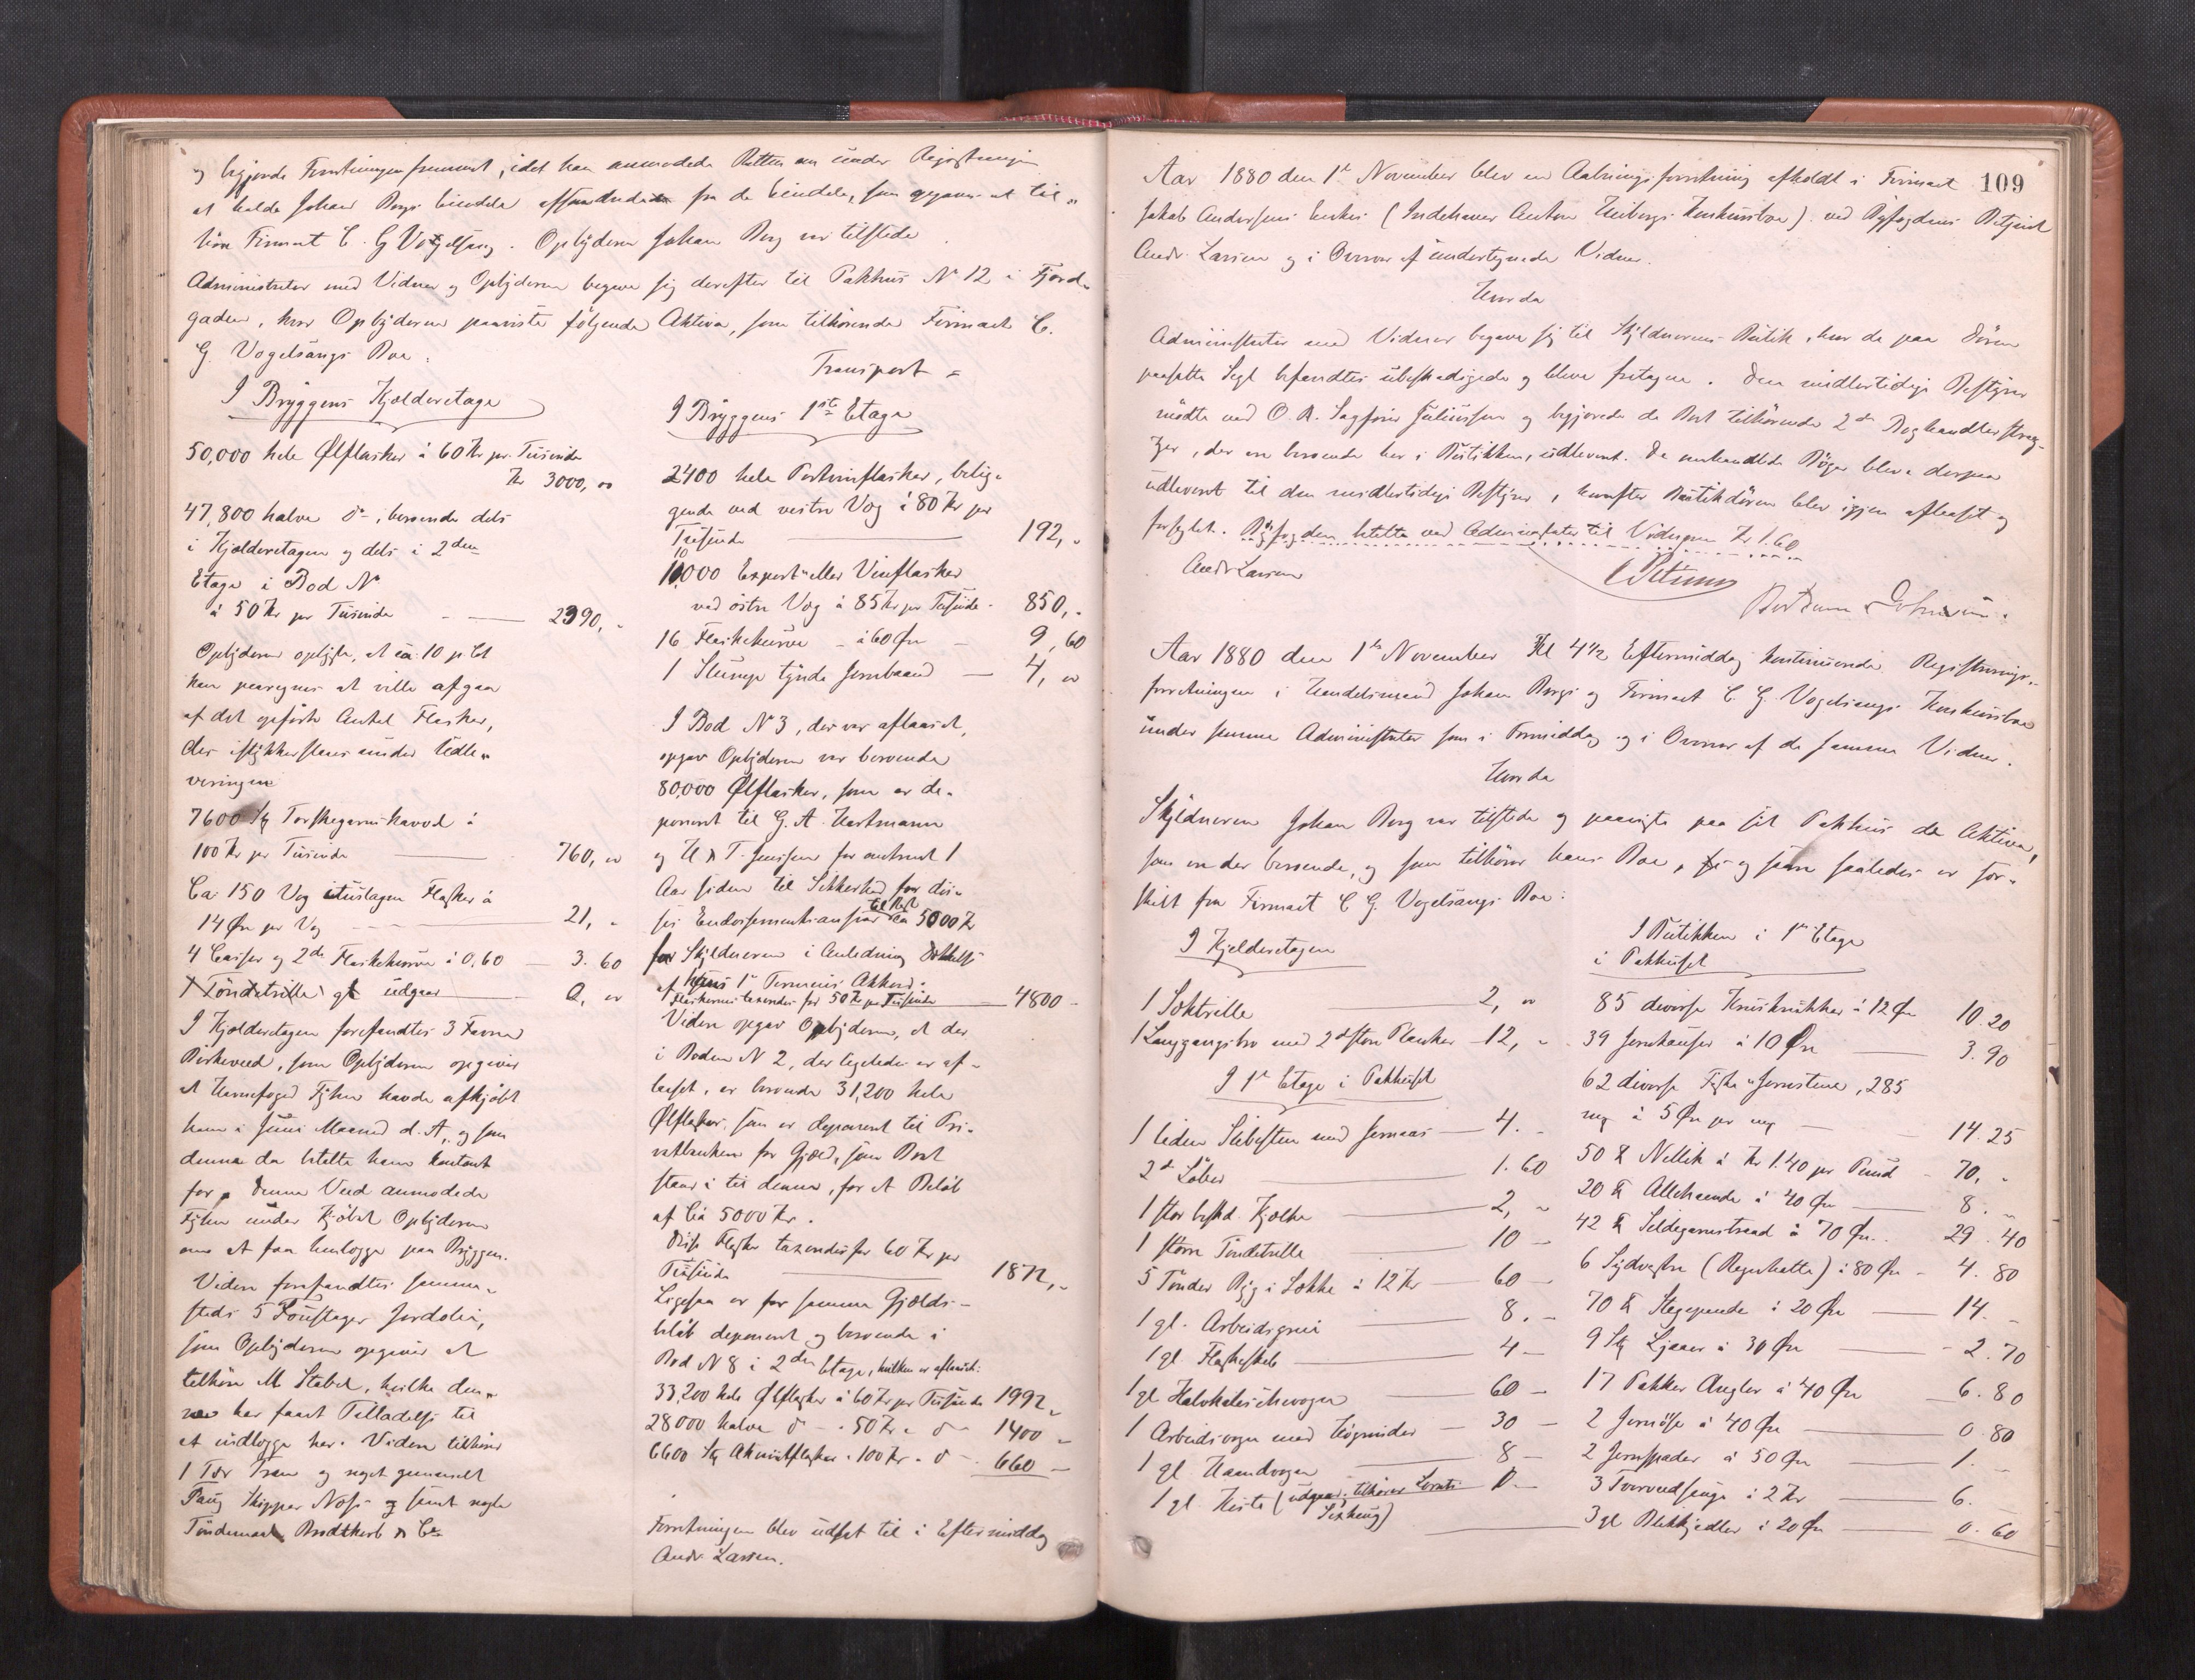 og begjærede Forretningen fremmet, idet han anmodede Retten om under Registreringen
at holde Johan Bergs Eiendele affsondrede fra de Eiendele, som opgaves at til„
høre Firmaet C. G Vogelsang. Opbyderen Johan Berg var tilstede
Administrator med Vidner og Opbyderen begave sig derefter til Pakhus No 12 i Fjord„
gaden, hvor Opbyderen paaviste følgende Aktiva, som tilhørende Firmaet C.
G. Vogelsangs Boe:
I Bryggens Kjælderetage
50,000 hele Ølflasker á 60 Kr pr. Tusinde
Kr 3000, oo
47,800 halve do, beroende dels
i Kjælderetagen og dels i 2den
Etage i Bod No
á 50 Kr pr Tusinde - 2390, „
Opbyderen oplyste, at ca. 10 p Ct
kan paaregnes at ville afgaa
af det opførte Antal Flasker,
der istykkerslaaes under Udle„
veringen
7600 Stk Torskegarnskavel á
100 Kr pr Tusinde 760, oo
Ca 150 Vog ituslagne Flasker á
14 Øre pr Vog 21, „
4 Caisser og 2 do Flaskekurve á 0,60 3. 60
1 Tøndetrille gl udgaar 0, oo
I Kjælderetagen forefandtes 3 Favne
Birkeved, som Opbyderen opgiver
at Havnefoged Tyhn havde afkjøbt
ham i Juni Maaned d. A, og som
denne da betalte ham kontant
for, denne Ved anmodede
Tyhn under Kjøbet Opbyderen
om at faa henlagge paa Bryggen.
Videre forefandtes samme„
steds 5 Foustager Jordolie,
som Opbyderen opgiver at
tilhøre M. Stabel, hvilke den„
ne har faaet Tilladelse til
at indlægge her. Videre tilhører
1 Tdr Tran og noget gammelt
Taug Skipper Noss og samt nogle
Tøndemaal Brødtkorb & Co
Transport =
I Bryggens 1ste Etage
2400 hele Portvinflasker, belig„
gende ved vestre Vog á 80 Kr per
Tusinde 192, „
10000 Export eller Vinflasker
ved østre Vog á 85 Kr pr Tusinde - 850, „
16 Flaskekurve - á 60 Øre - 9, 60
1 Stump tynde Jernbaand - 4, oo
I Bod No 3, der var aflaaset,
opgav Opbyderen var beroende
80,000 Ølflasker, som er de„
poneret til G. A. Hartmann
og H & T. Jenssen for omtrent 1
Aar siden til Sikkerhed for dis„
ses Endossementsansvar til Rest ca 5000 Kr
for Skyldneren i Anledning
af hans 1ste Termins Akkord.
Flaskerne taxeredes for 50 Kr pr Tusinde 4800 -
Videre opgav Opbyderen, at der
i Boden N 2, der ligeledes er af„
laaset, er beroende 31,200 hele
Ølflasker, som er deponeret til Pri„
vatbanken for Gjæld, som Boet
staar i til denne, for et Beløb
af Ca 5000 Kr.
Disse Flasker taxeredes for 60 Kr pr
Tusinde 1872, „
Ligesaa er for samme Gjælds„
beløb deponeret og beroende i
Bod N 8 i 2den Etage, hvilken er aflaaset:
33,200 hele Ølflasker á 60 Kr pr Tusinde 1992 „
28000 halve do - „ 50 Kr „ do 1400 „
6600 Stk Akvavitflasker „ 100 Kr „ do - 660 -
Forretningen blev udsat til i Eftermiddag
Andr. Larsen.
109
Aar 1880 den 1ste November blev en Aabningsforretning afholdt i Firmaet
Jakob Andersens Enkes (Indehaver Anton Huibergs Konkursboe) ved Byfogdens Betjent
Andr. Larsen og i Overvær af undertegnede Vidner.
Hvorda
Administrator med Vidner begave sig til Skyldnerens Butik, hvor de paa Døren
paasatte Segl befandtes ubeskadigede og bleve fratagne. Den midlertidige Bestyrer
mødte ved O. R. Sagfører Juliussen og begjærede de Boet tilhørende 2de Boghandlerstrag-
zer, der ere beroende her i Butikken, udleveret. De omhandlede Bøger bleve derpaa
udleveret til den midlertidige Bestyrer, hvorefter Butikdøren blev igjen aflaaset og
forseglet. Byfogden betalte ved Administrator til Vidnerne Kr 1.60
Andr Larsen
Aar 1880 den 1ste November Kl 4½ Eftermiddag kontinueredes Registrerings„
forretningen i Handelsmand Johan Bergs og Firmaet C G. Vogelsangs Konkursboe
under samme Administrator som i Formiddag og i Overvær af de samme Vidner.
Hvorda
Skyldneren Johan Berg var tilstede og paaviste paa sit Pakhus de Aktiva,
som er der beroende, og som tilhører hans Boe, og som saaledes er for„
skilt fra Firmaet C G. Vogelsangs Boe:
I Kjelderetagen
1 Sæktrille 2, oo
1 Langgangsbro med 2 do store Planker 12, „
I 1ste Etage i Pakhuset
1 liden Slibesten med Jernaas 4. -
2 do Løber 1. 60
1 stor beslet Kjælke 2, „
1 større Tøndetrille 10 -
5 Tønder Byg i Sække á 12 Kr 60 -
1 gl. Arbeidsgreie 8. -
1 gl. Flaskeskab 4 -
1 gl Halvkaleschevogn 60 -
1 Arbeidsvogn med Høgrinder 30 -
1 gl. Haandvogn 8 -
1 gl. Kiste (udgaar, tilhører Lorents
Sexhaug) 0 -
I Butikken i 1ste Etage
i Pakhuset
85 diverse Kruskrukker á 12 Øre 10. 20
39 Jernkauser á 10 Øre 3. 90
62 diverse Fiske „ Jernstene, 285
mg á 5 Øre pr mg 14. 25
50 ℔ Nellik á Kr 1.40 pr Pund 70, „
20 ℔ Allehaande á 40 Øre 8. „
42 ℔ Sildegarnstraad á 70 Øre 29. 40
6 Sydvestre (Regnhatte) á 80 Øre 4. 80
70 ℔ Stegepande á 20 Øre 14. -
9 Stk Ljaaer á 30 Øre 2. 70
17 Pakker Angler á 40 Øre 6. 80
2 Jernøse á 40 Øre 0. 80
2 Jernspader á 50 Øre 1. -
3 Tværvedsauge á 2 Kr 6. -
3 gl Blikkjedler á 20 Øre 0. 60